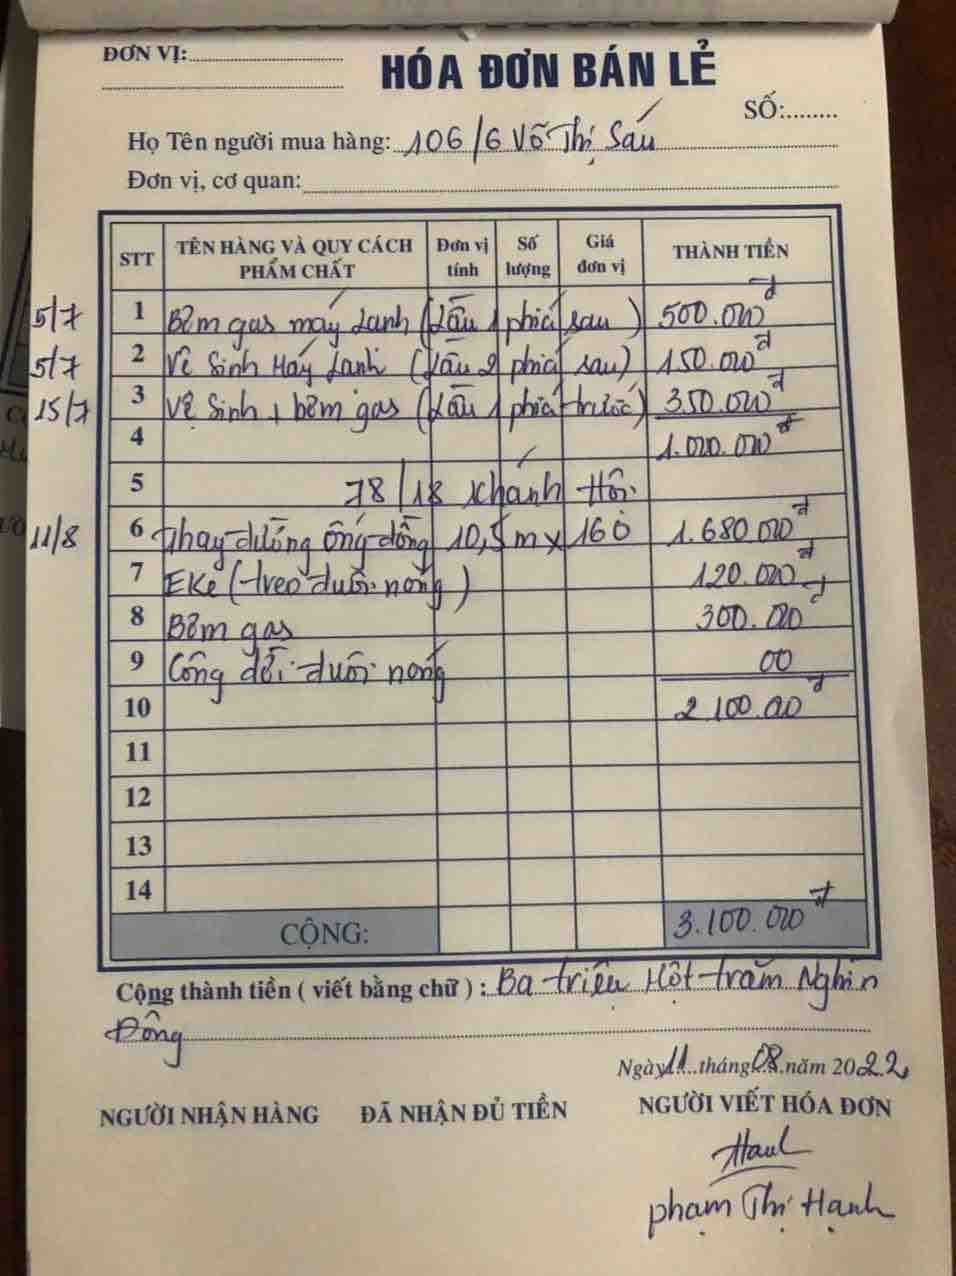 ĐƠN VỊ:
HÓA ĐƠN BÁN LẺ
SỐ:
Họ Tên người mua hàng: 106/6 Võ Thị Sáu
Đơn vị, cơ quan:
STT TÊN HÀNG VÀ QUY CÁCH PHẨM CHẤT Đơn vị tính Số lượng Giá đơn vị THÀNH TIỀN
5/7 1 Bơm gas máy lạnh (Lầu 1 phía sau) 500.000đ
5/7 2 Vệ Sinh Máy Lạnh (Lầu 2 phía sau) 150.000đ
15/7 3 Vệ Sinh + bơm gas (Lầu 1 phía trước) 350.000đ
4 1.000.000đ
5 78/18 Khánh Hội
11/8 6 Thay đường ống đồng 10,5m x 160 1.680.000đ
7 EKe (treo đuôi nóng) 120.000đ
8 Bơm gas 300.000đ
9 Công dời đuôi nóng 00
10 2.100.000đ
11
12
13
14
CỘNG: 3.100.000đ
Cộng thành tiền ( viết bằng chữ ) : Ba triệu Một trăm Nghìn
Đồng
Ngày 11 tháng 08 năm 2022
NGƯỜI NHẬN HÀNG ĐÃ NHẬN ĐỦ TIỀN NGƯỜI VIẾT HÓA ĐƠN
Phạm Thị Hạnh